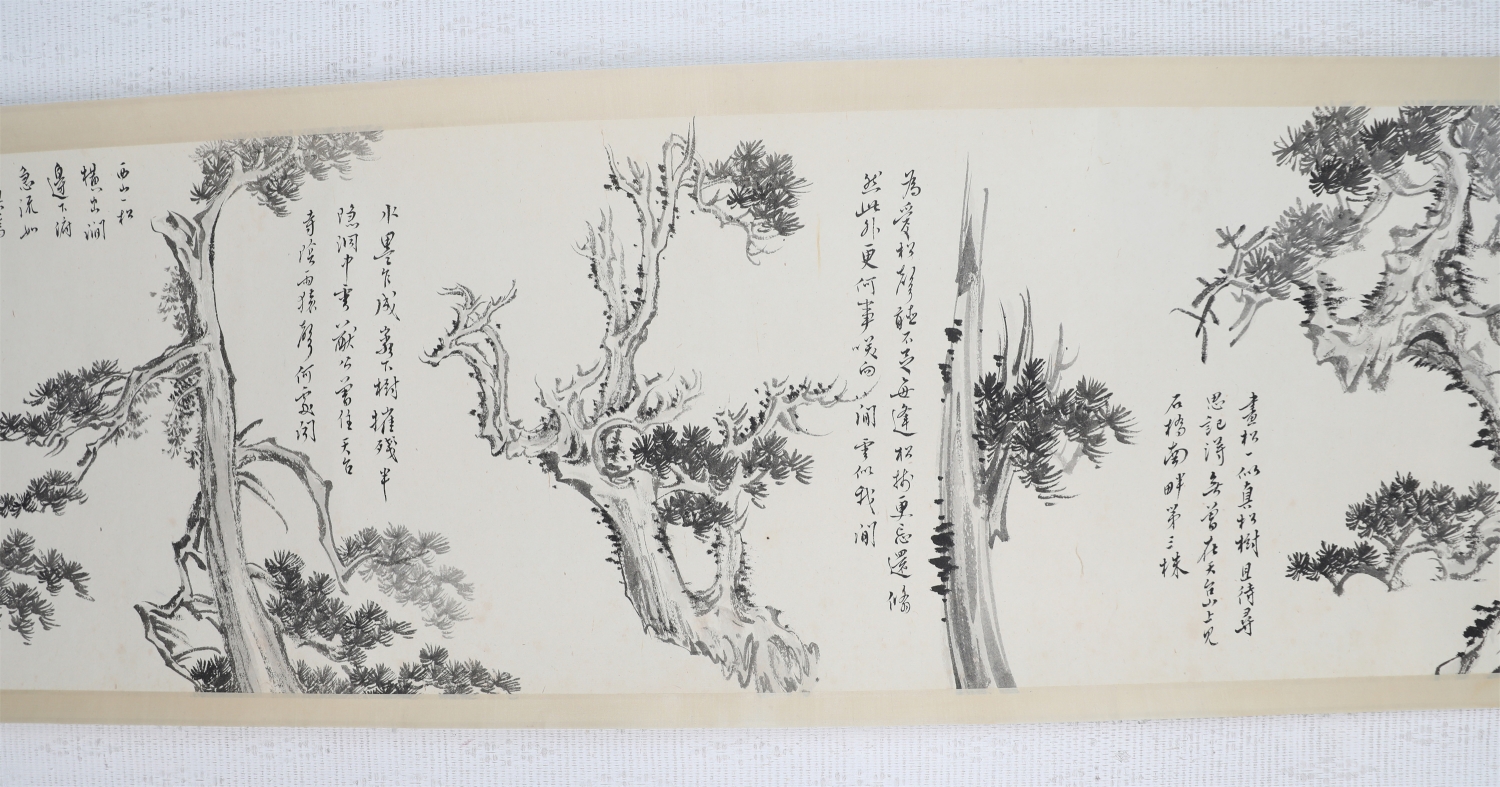 畫松一似真松樹且待尋
思記得無曾在天台山上見
石橋南畔第三株
為愛松聲聽不足每逢松樹更忘還翛
然此外更何事咲向閒雲似我閒
水墨乍成岩下樹摧殘半
隱洞中雲猷公曾住天台
寺陰雨猿聲何處聞
西山一松
橫出澗
邊下俯
急流如